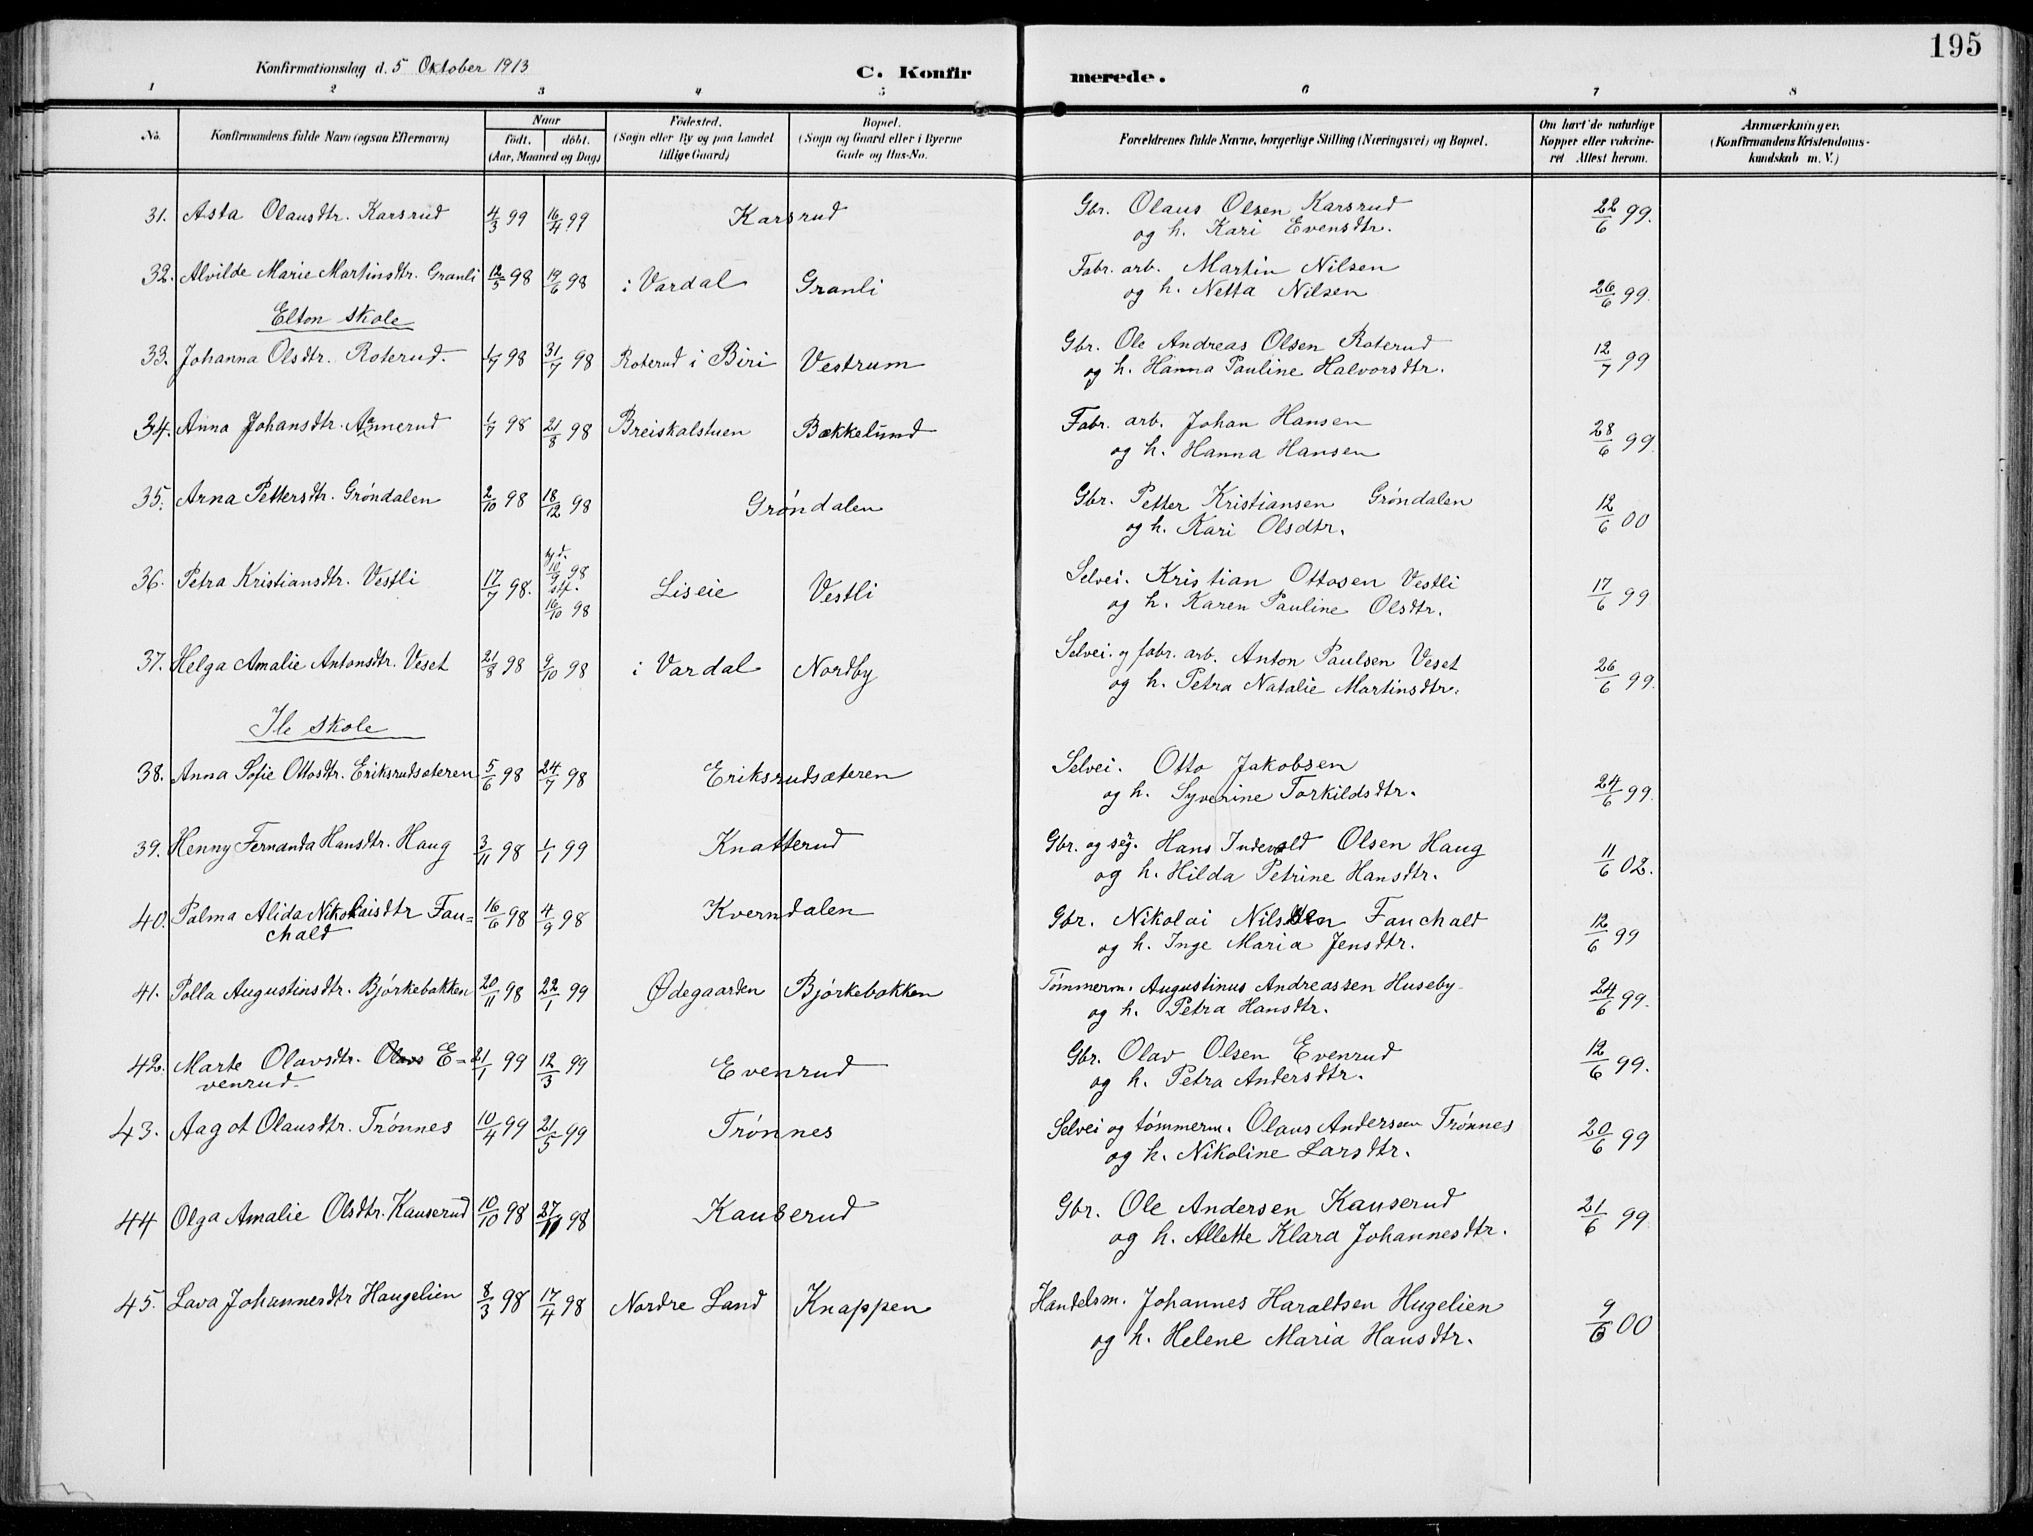 195
Konfirmationsdag d. 5 Oktober 1913
C. Konfirmerede.
1 2 3 4 5 6 7 8
No. Konfirmandens fulde Navn (ogsaa Efternavn) Naar født. døbt. (Aar, Maaned og Dag) Fødested. (Sogn eller By og paa Landet tillige Gaard) Bopæl. (Sogn og Gaard eller i Byerne Gade og Hus-No. Forældrenes fulde Navne, borgerlige Stilling (Næringsvei) og Bopæl. Om havt de naturlige Kopper eller vakcineret Attest herom. Anmærkninger. (Konfirmandens Kristendomskundskab m. V.)
31. Asta Olausdtr. Karsrud 4/3 99 16/4 99 Karsrud Gbr. Olaus Olsen Karsrud 22/6 99.
og h. Kari Evensdtr.
32. Alvilde Marie Martinsdtr. Granli 12/5 98 19/6 98 i Vardal Granli Fabr. arb. Martin Nilsen 26/6 99.
og h. Netta Nilsen
Elton skole
33. Johanna Olsdtr. Roterud. 1/7 98 31/7 98 Roterud i Biri Vestrum Gbr. Ole Andreas Olsen Roterud 12/7 99
og h. Hanna Pauline Halvorsdtr.
34. Anna Johansdtr. Annerud 1/7 98 21/8 98 Breiskalstuen Bækkelund Fabr. arb. Johan Hansen 28/6 99.
og h. Hanna Hansen
35. Arna Pettersdtr. Grøndalen 2/10 98 18/12 98 Grøndalen Gbr. Petter Kristiansen Grøndalen 12/6 00
og h. Kari Olsdtr.
36. Petra Kristiansdtr. Vestli 17/7 98. hj. d. 10/9 98 stf. 16/10 98 Liseie Vestli Selvei. Kristian Ottosen Vestli 17/6 99
og h. Karen Pauline Olsdtr.
37. Helga Amalie Antonsdtr. Veset 21/8 98 9/10 98 i Vardal Nordby Selvei. og fabr. arb. Anton Paulsen Veset 26/6 99.
og h. Petra Natalie Martinsdtr.
Ile skole
38. Anna Sofie Ottosdtr. Eriksrudsæteren 5/6 98 24/7 98 Eriksrudsæteren Selvei. Otto Jakobsen 24/6 99.
og h. Syverine Torkildsdtr.
39. Henny Fernanda Hansdtr. Haug 3/11 98 1/1 99 Knatterud Gbr. og sag. Hans Indevald Olsen Haug 11/6 02.
og h. Hilda Petrine Hansdtr.
40. Palma Alida Nikolaisdtr Fau= 16/6 98 4/9 98 Kverndalen Gbr. Nikolai Nilssen Fauchald 12/6 99
chald og h. Inge Maria Jensdtr.
41. Polla Augustinsdtr. Bjørkebakken 20/11 98 22/1 99 Ødegaarden Bjørkebakken Tømmerm. Augustinus Andreassen Huseby 24/6 99.
og h. Petra Hansdtr.
42. Marte Olavsdtr. Olavs E= 21/1 99 12/3 99 Evenrud Gbr. Olav Olsen Evenrud 12/6 99.
venrud. og h. Petra Andersdtr.
43. Aagot Olausdtr. Trønnes 10/4 99 21/5 99 Trønnes Selvei og tømmerm. Olaus Andersen Trønnes 20/6 99
og h. Nikoline Larsdtr.
44 Olga Amalie Olsdtr. Kauserud 10/10 98 27/11 98 Kauserud Gbr. Ole Andersen Kauserud 21/6 99
og h. Allette Klara Johannesdtr.
45. Lava Johannesdtr Haugelien 8/3 98 17/4 98 Nordre Land Knappen Handelsm. Johannes Haraldsen Hugelien 9/6 00
og h. Helene Maria Hansdtr.